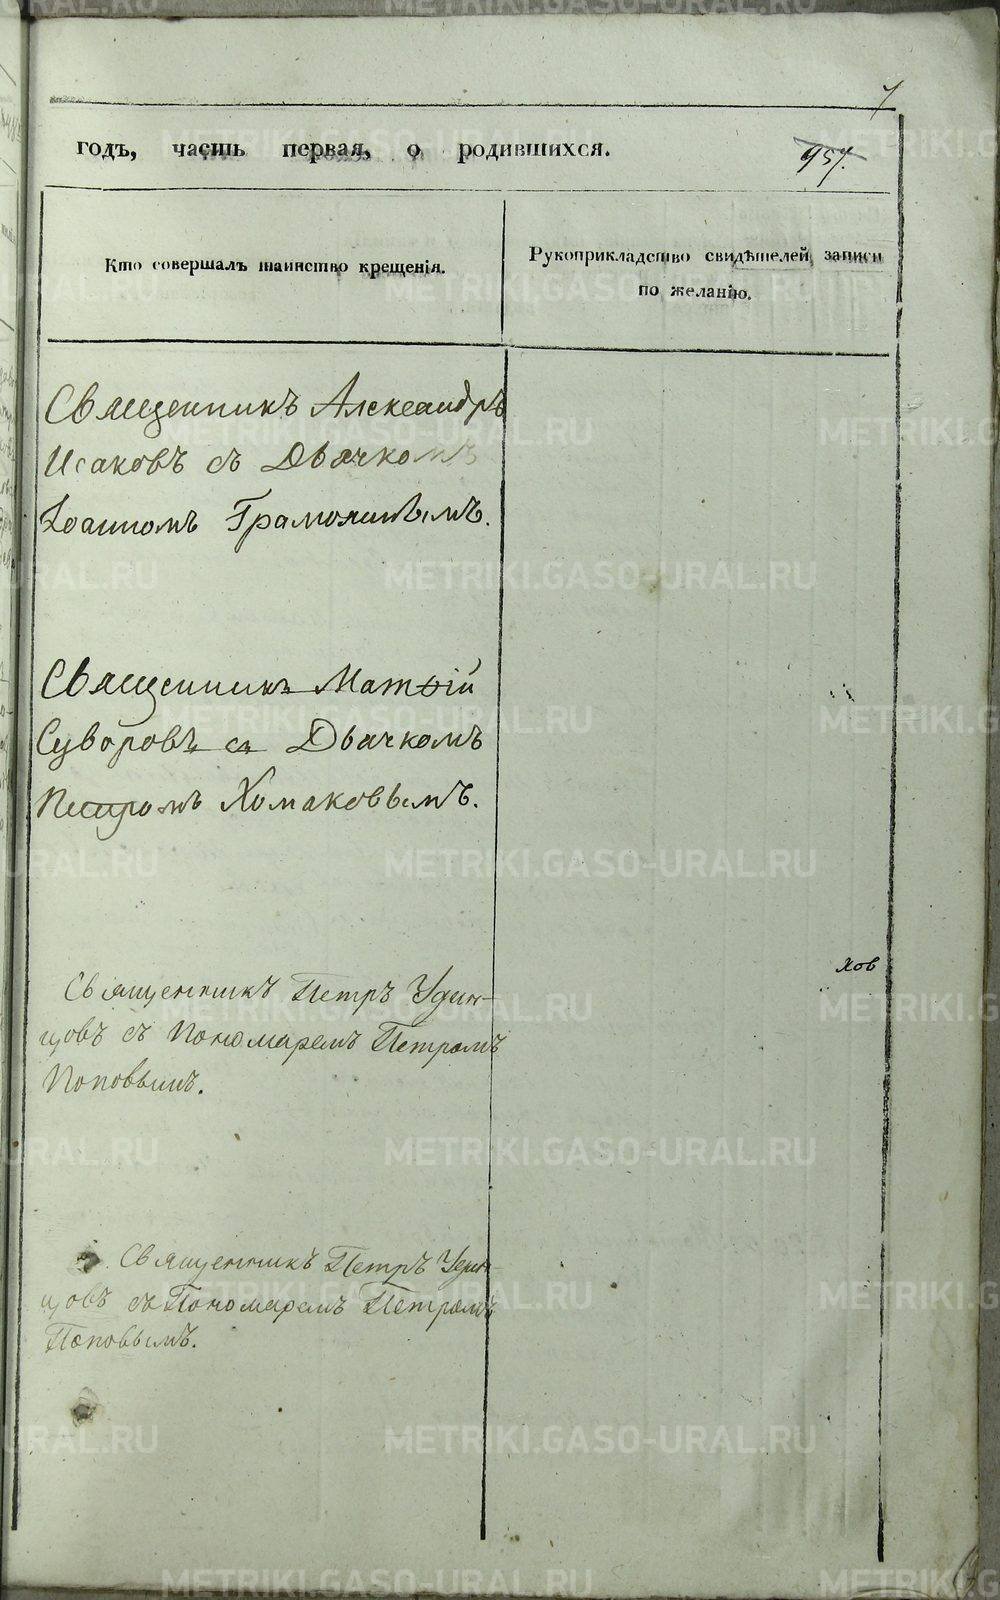 7
годъ, часть первая, о родившихся.
957.
Кто совершалъ таинство крещенія.
Рукоприкладство свидѣтелей записи
по желанію.
Священникъ Александръ
Исаковъ съ Дьячкомъ
Іоанномъ
Священникъ Матѳій
Суворовъ съ Дьячкомъ
Петромъ Хомаковымъ.
хов
Священникъ Петръ Удин-
цовъ съ Пономаремъ Петромъ
Поповымъ.
Священникъ Петръ Удин-
цовъ съ Пономаремъ Петромъ
Поповымъ.
METRIKI.GASO-URAL.RU